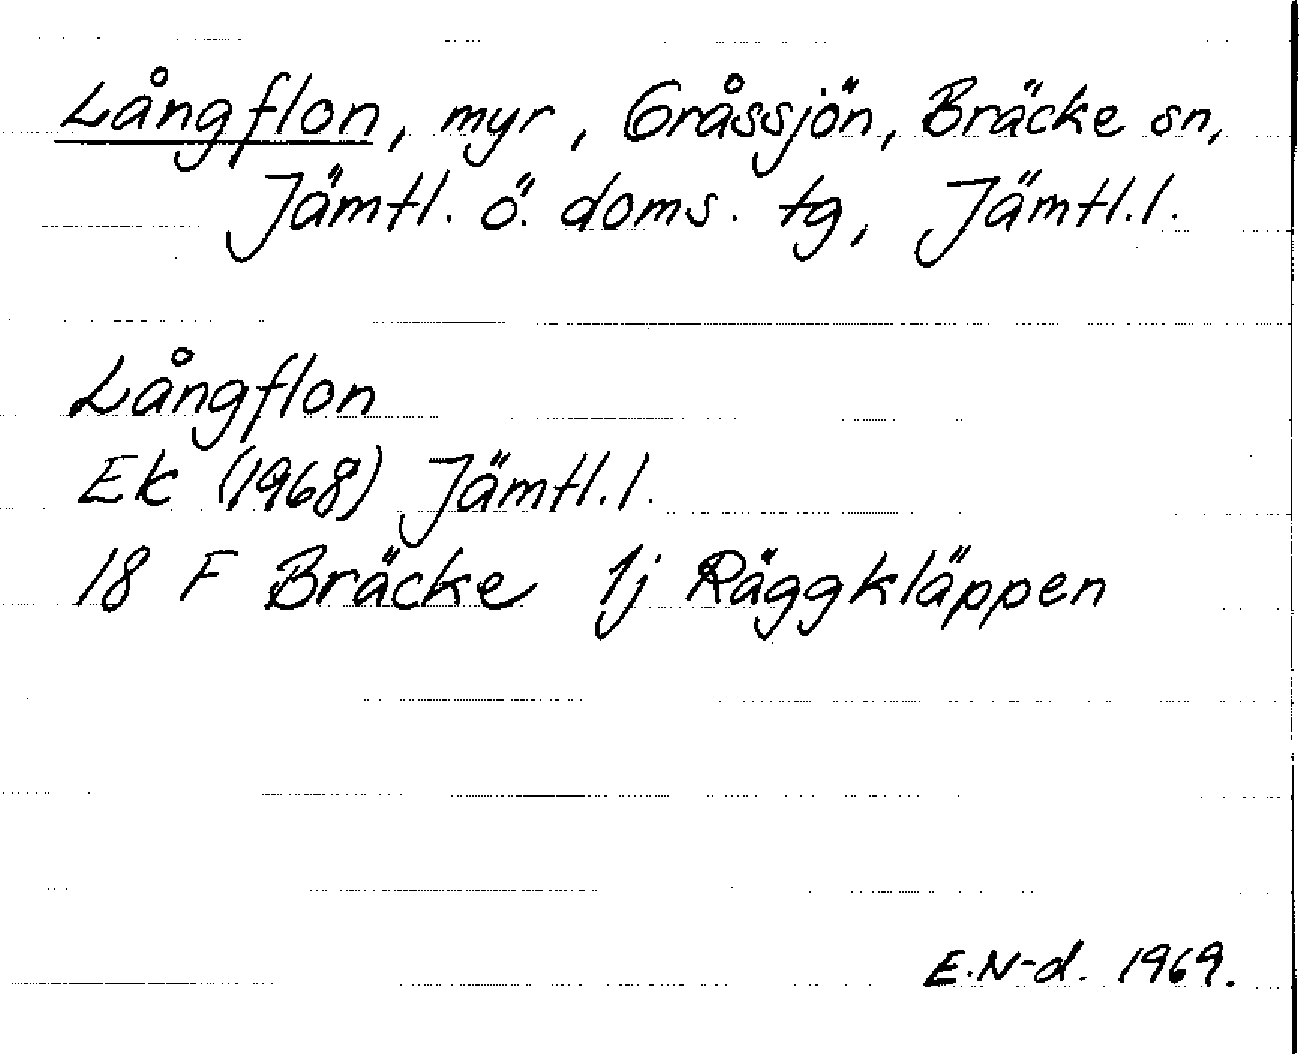 Långflon, myr, Gråssjön, Bräcke sn,
Jämtl. ö. doms. tg, Jämtl.l.
Långflon
Ek (1968) Jämtl.l.
18 F Bräcke 1j Räggkläppen
E.N-d. 1969.